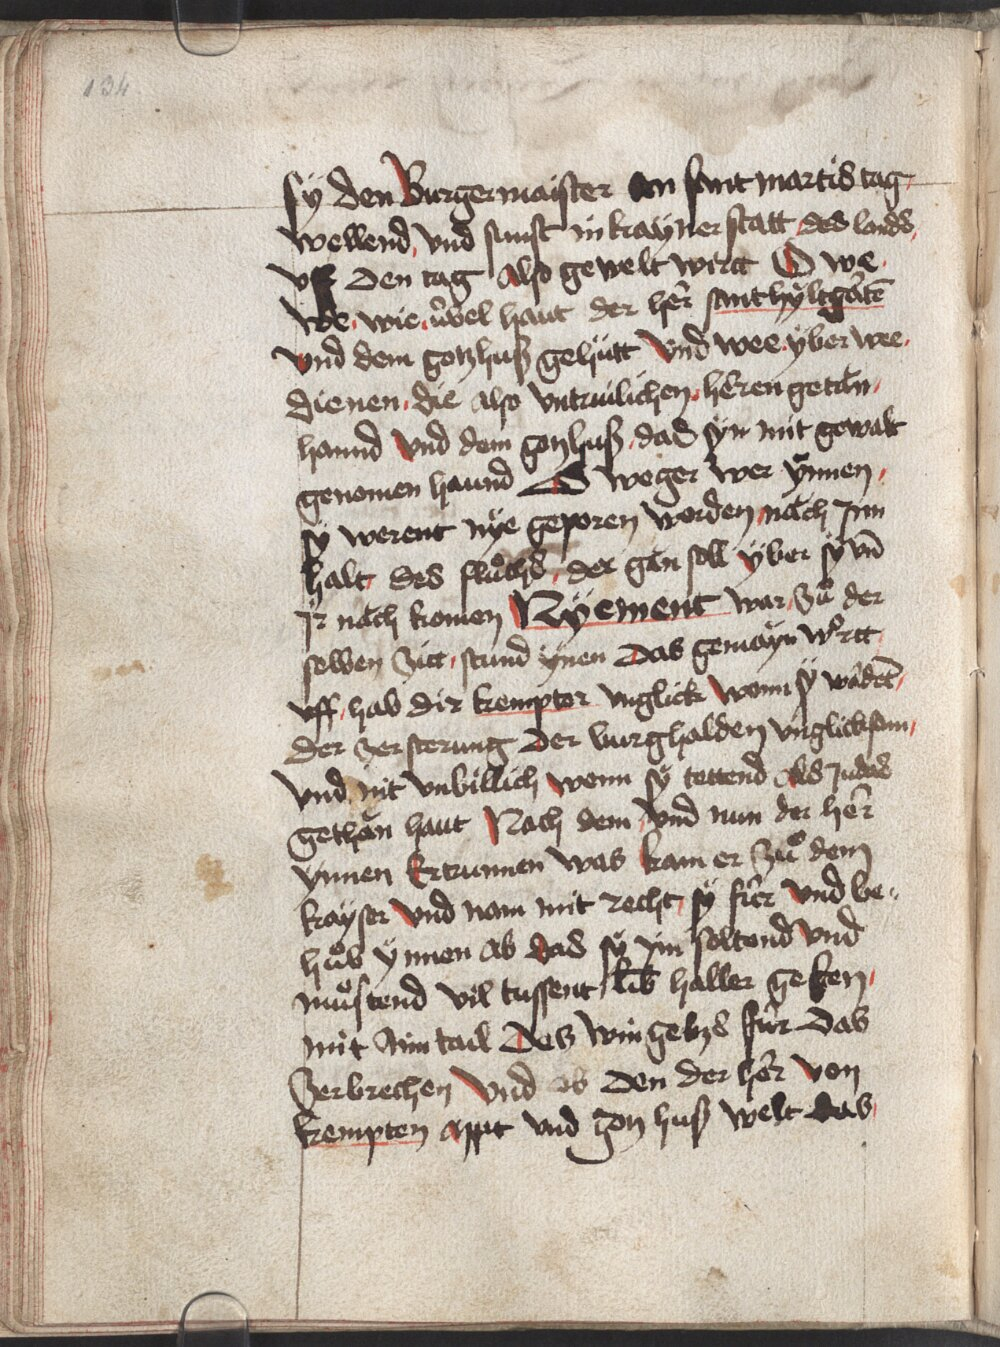 134
sÿ den Burgermaister an sant martis tag
wellend und sunst in krayner statt des lands
uff den tag also gewelt wirtt O we
we wie übel haut der her sant hyltgarte
und dem gotzhuß gehütt Und wee yber wee
dienen die also untruilichen heren getan
haund Und dem gotzhuß das syn mit gewalt
genomen haund O weger wer ÿnnen
sÿ werent nÿe geporen worden nach Inn
halt des fluͦchs der gan soll ÿber sÿ un̄
Ir nach komen Nÿement war zuͦ der
selben zitt stund ÿnen das gemayn wortt
uff hab dir kempter unglick wann sÿ
der zersterung der burghalden unglicksam
und nit unbillich wenn sÿ tettend als Judas
gethan haut Nach dem und nun der her
ÿnnen Ertrunnen was kam er zuͦ dem
kayser Und nam mit recht sÿ fier Und be
huͦb ÿnnen ab das sÿ ym soltend Und
muͦstend vil tussent lib haller geben
mit aim tail des win geltz für das
zerbrechen Und ob den der her von
kempten appt und gotz huß welt das